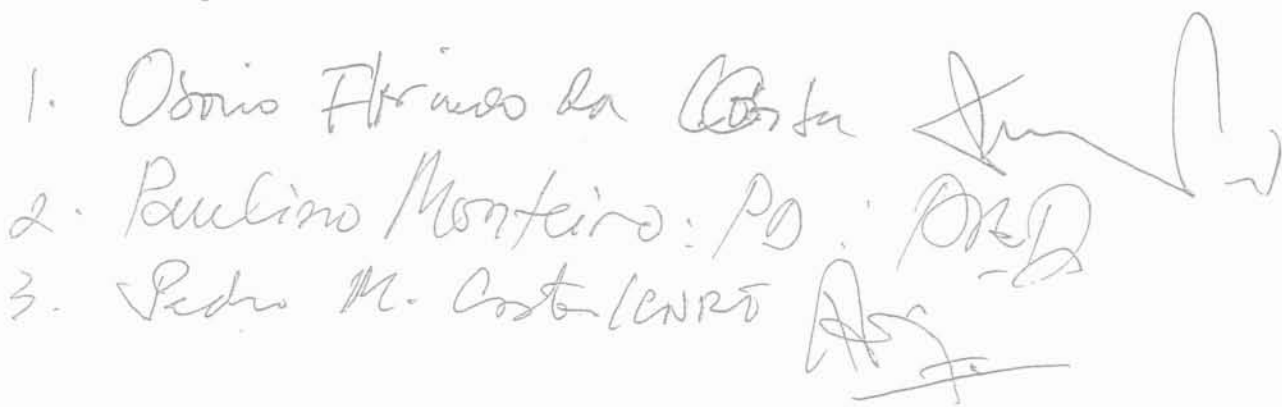 1. Osorio Florindo da Costa
2. Paulino Monteiro: PD:
3. Pedro M. Costa/CNRT